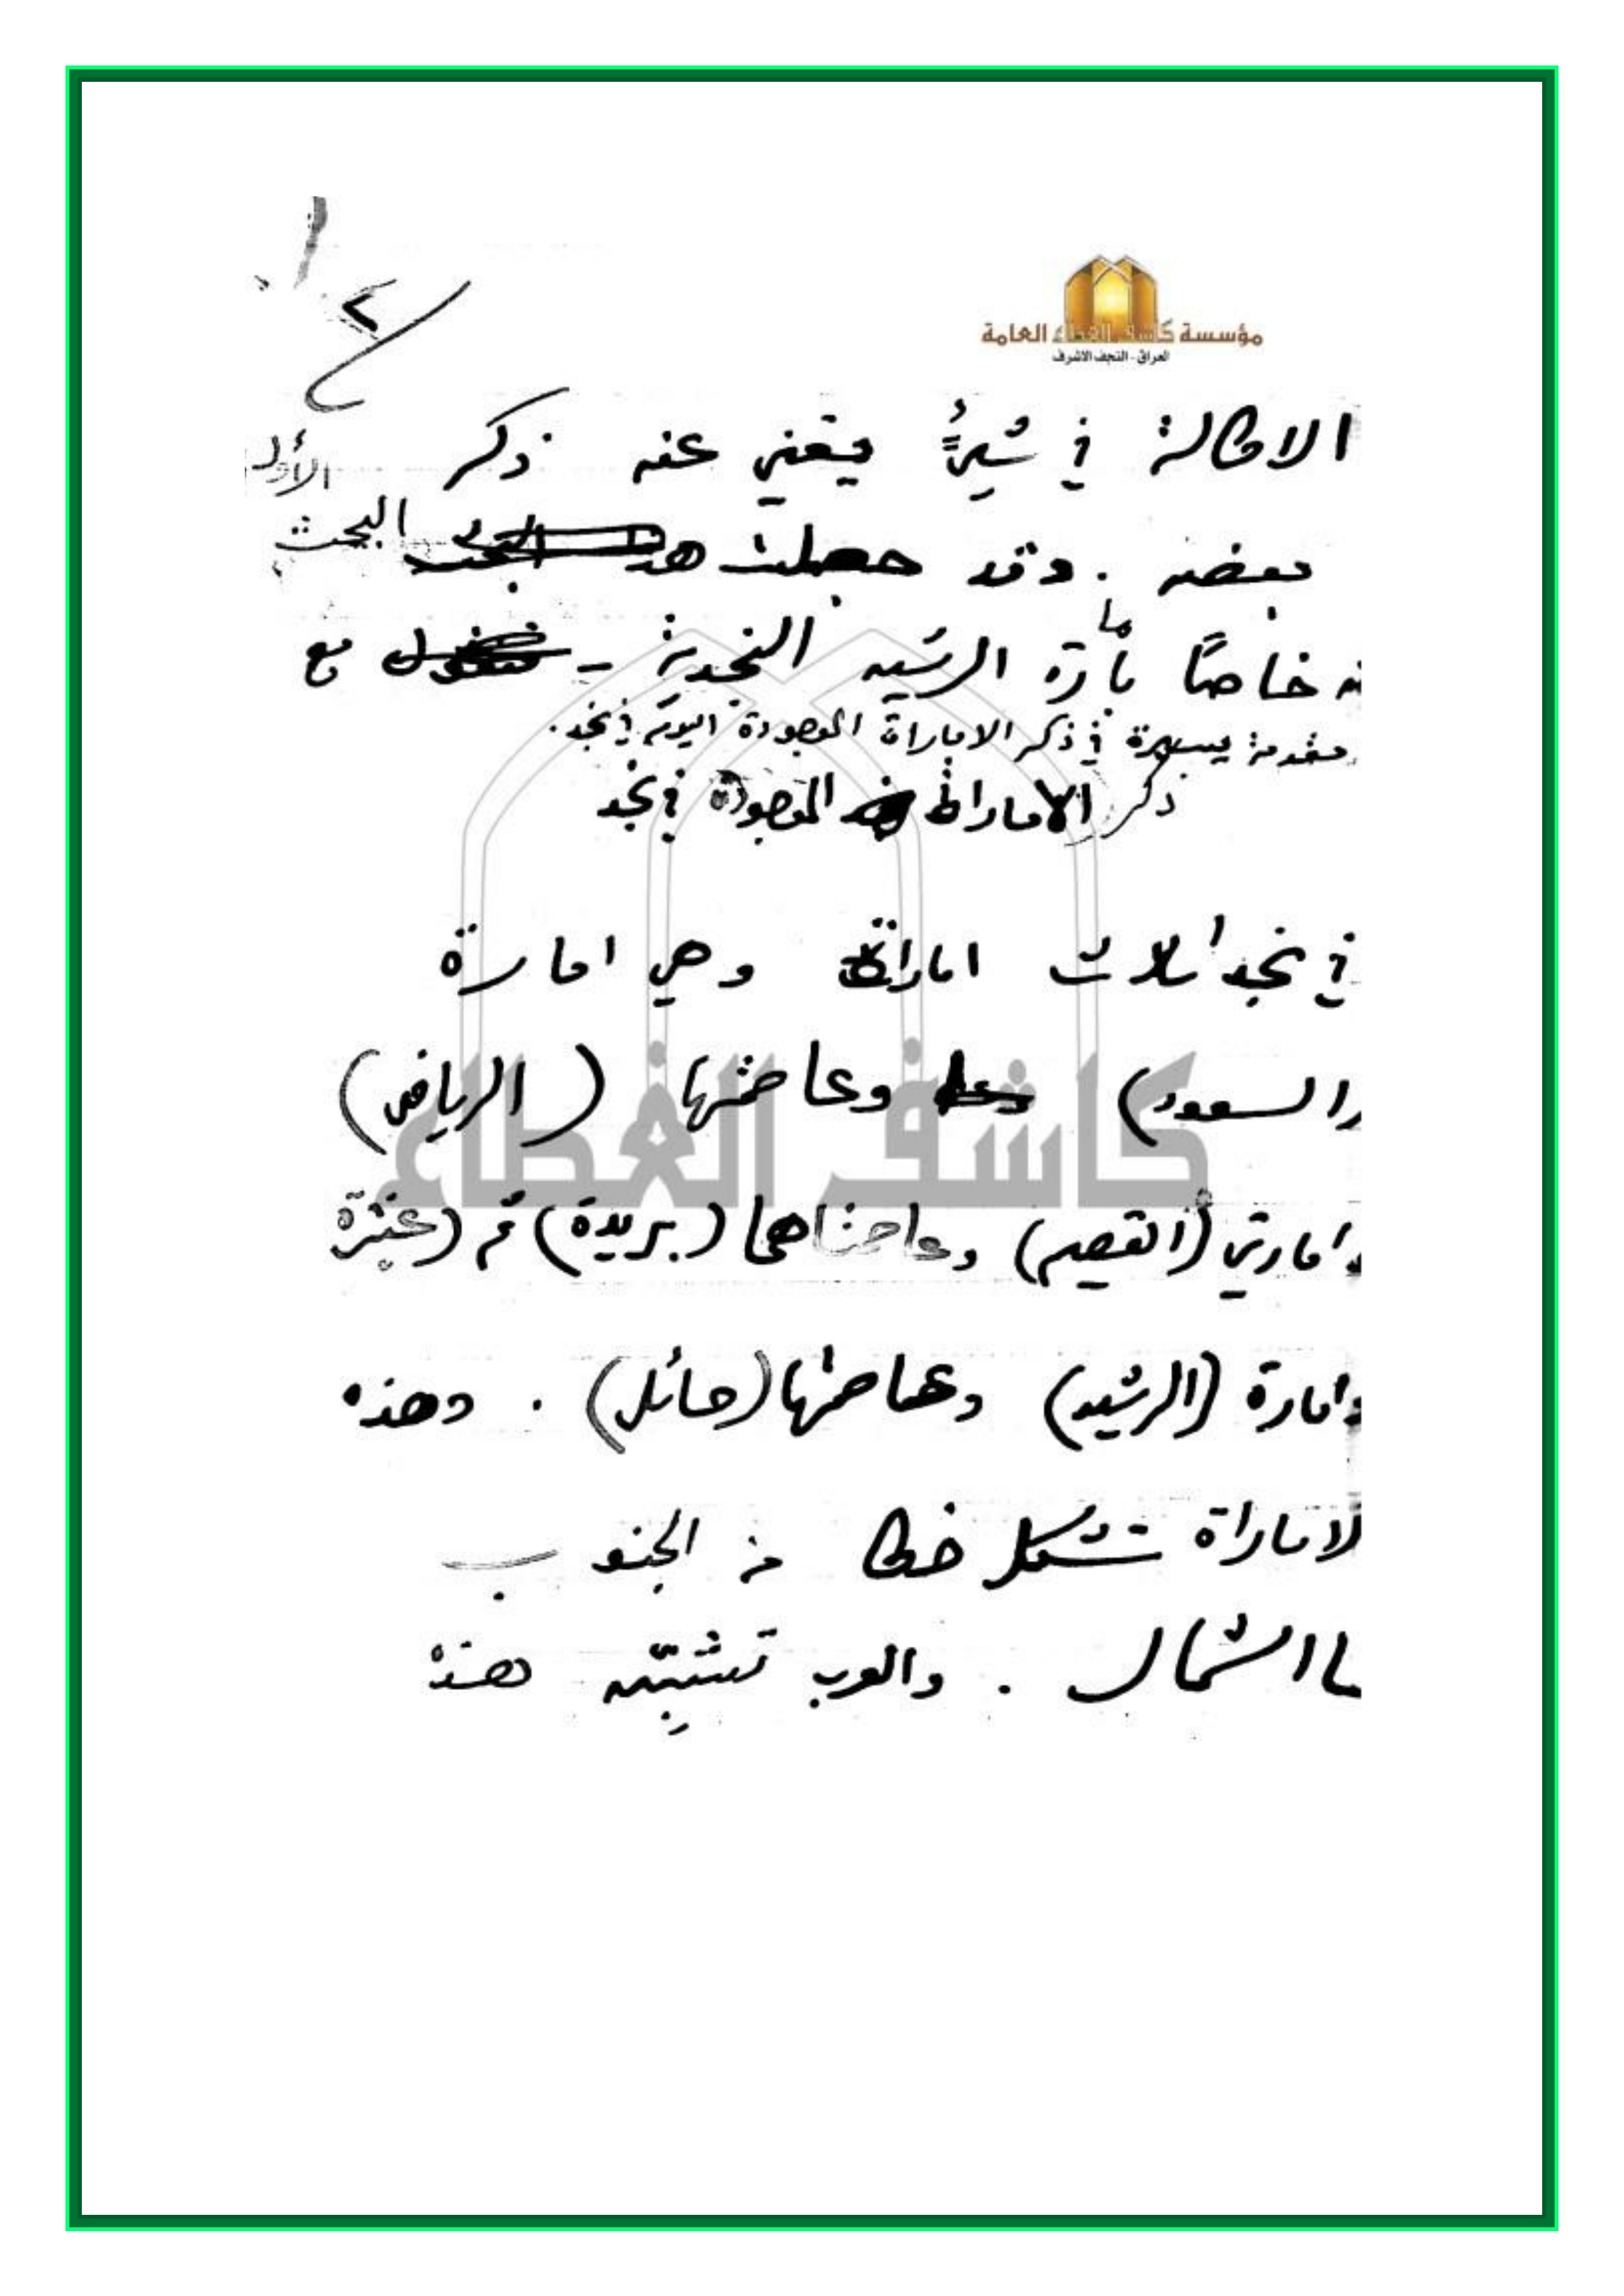 ٢
مؤسسة كاشف الغطاء العامة
العراق - النجف الاشرف
الاطالة في شيءٍ يغني عنه ذكر
بعضه . وقد جعلت البحث الأول
منه خاصًا بامارة الرشيد النجدية - مع
مقدمة يسيرة في ذكر الامارات الموجودة اليوم في نجد.
ذكر الامارات الموجودة في نجد
في نجد ثلاث امارات وهي امارة
(السعود) وعاصمتها (الرياض)
وامارتي (القصيم) وعاصمتاهما (بريدة) ثم (عنيزة)
وامارة (الرشيد) وعاصمتها (حائل) . وهذه
الامارات تشكل خطا من الجنوب
الشمال . والعرب تشبّه هذه
كاشف الغطاء